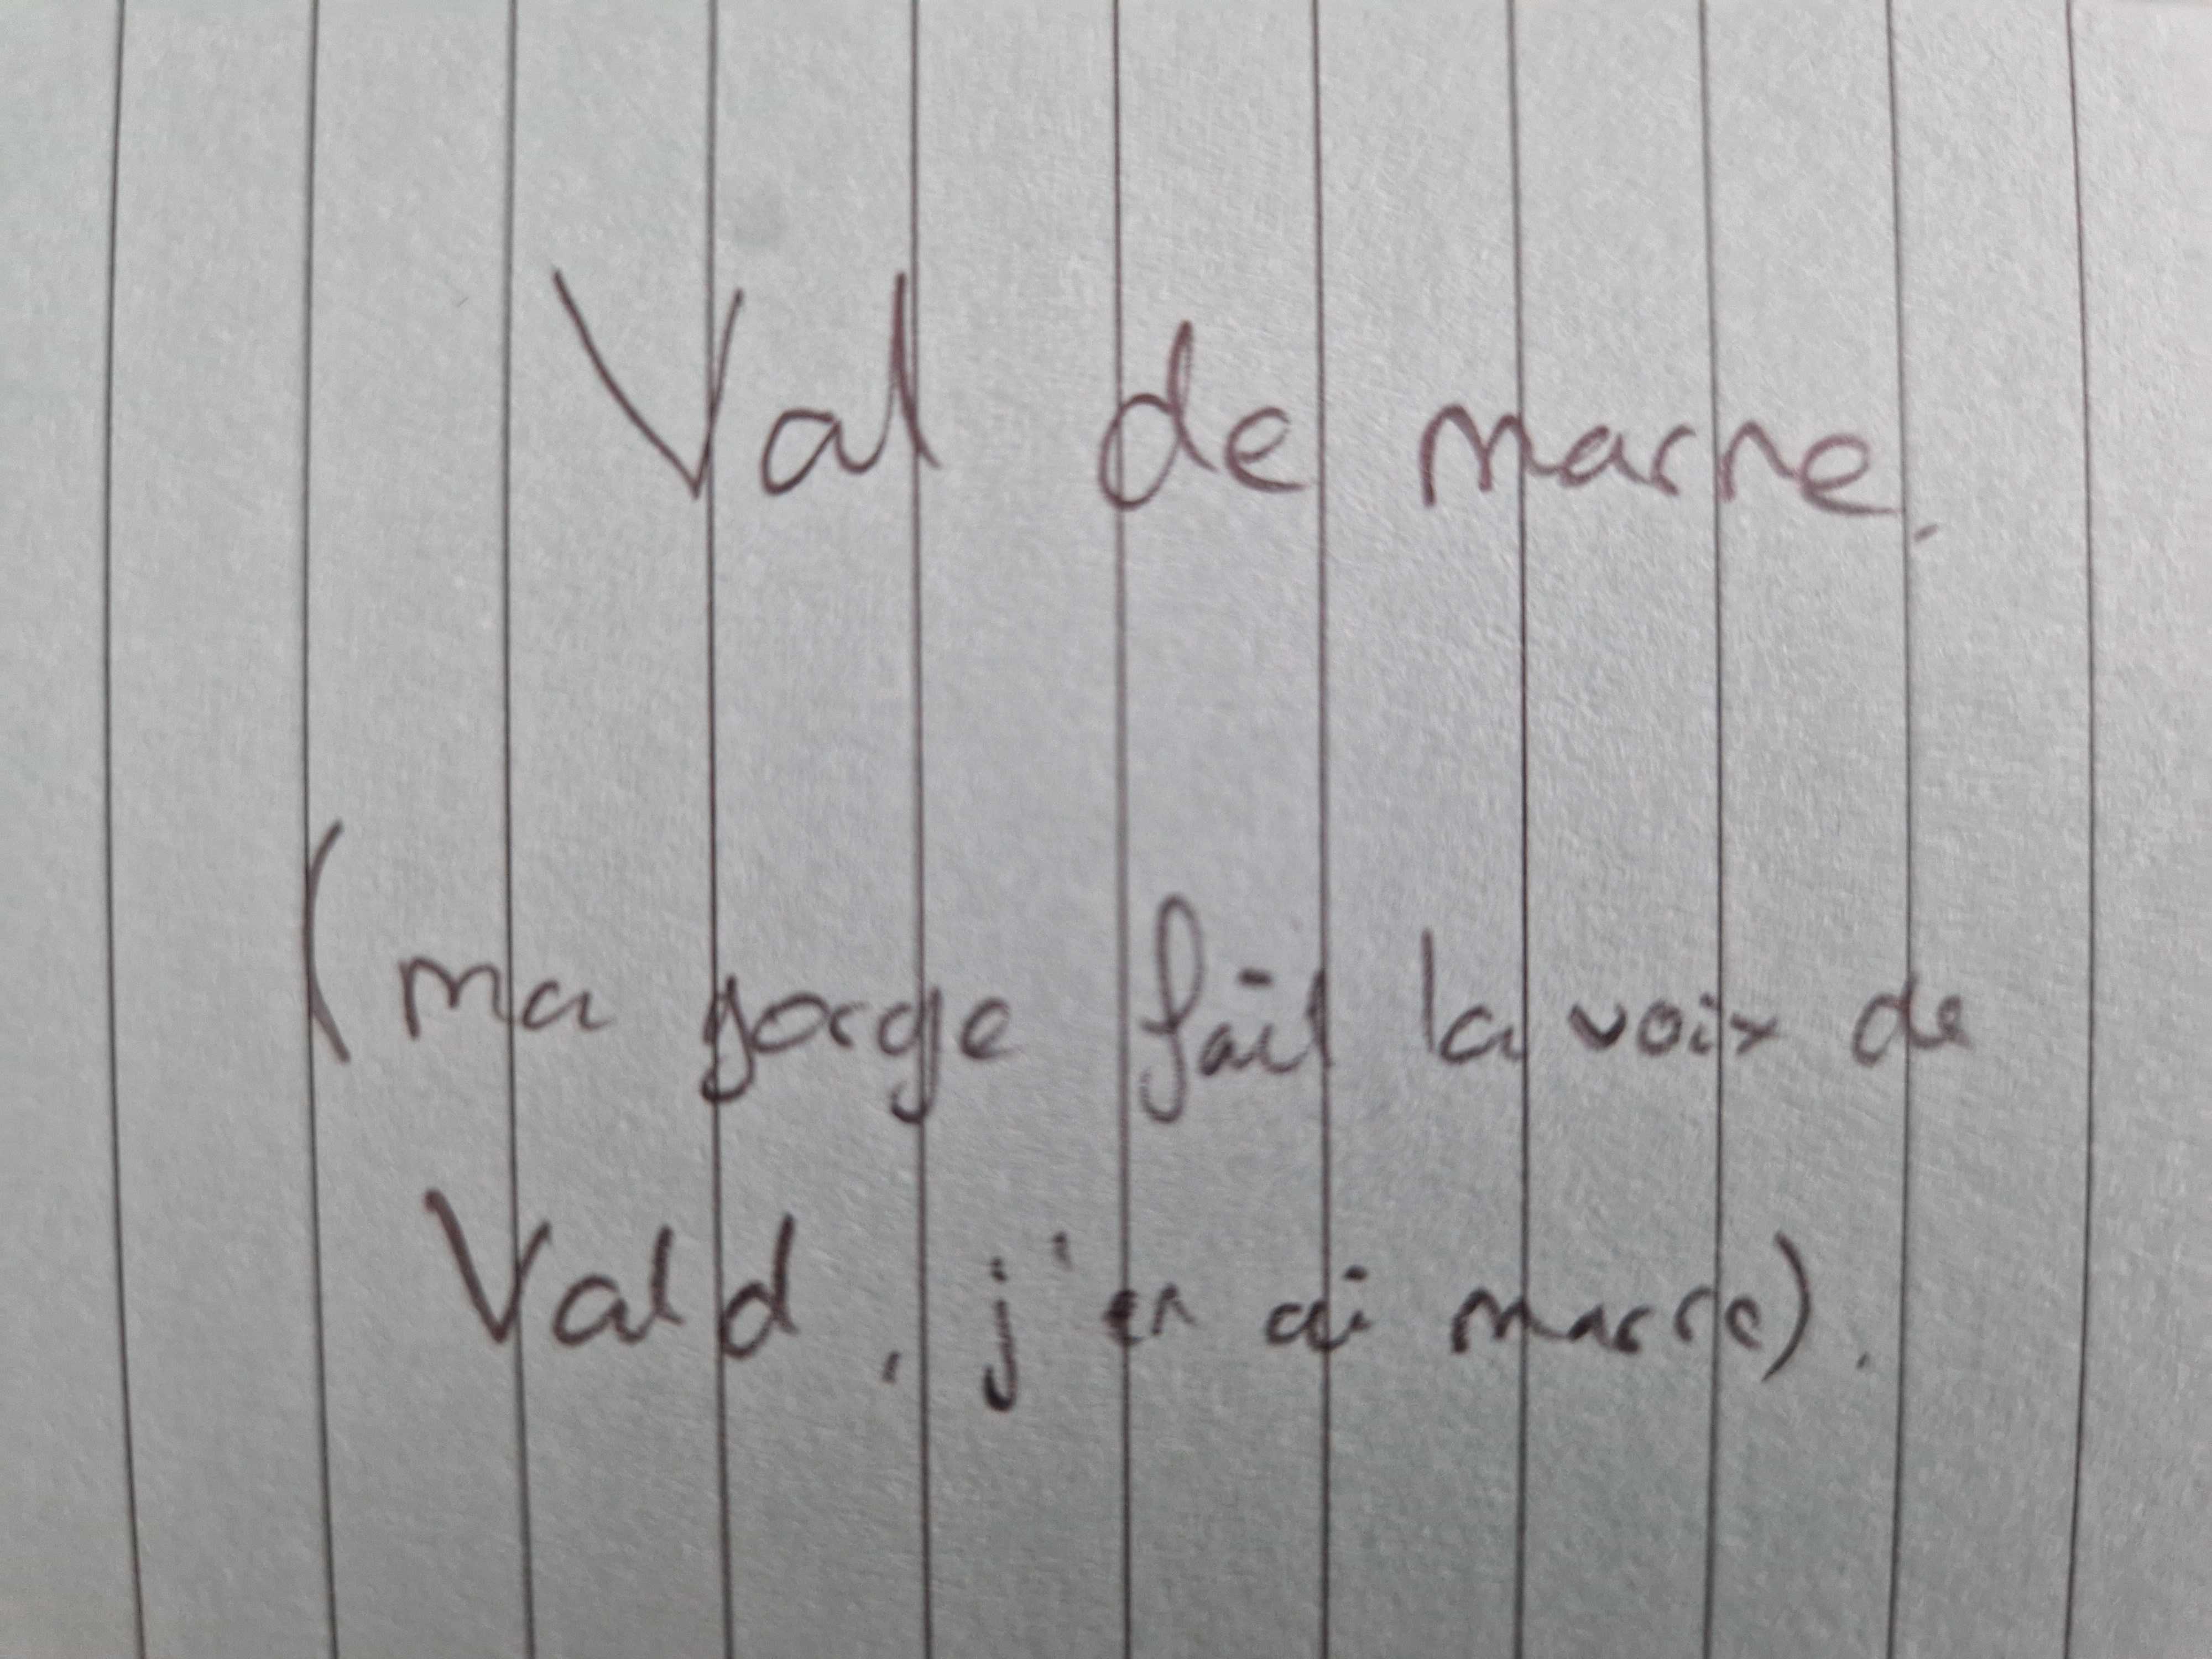 Val de marne.
(ma gorge fait la voix de
Vald, j'en ai marre).